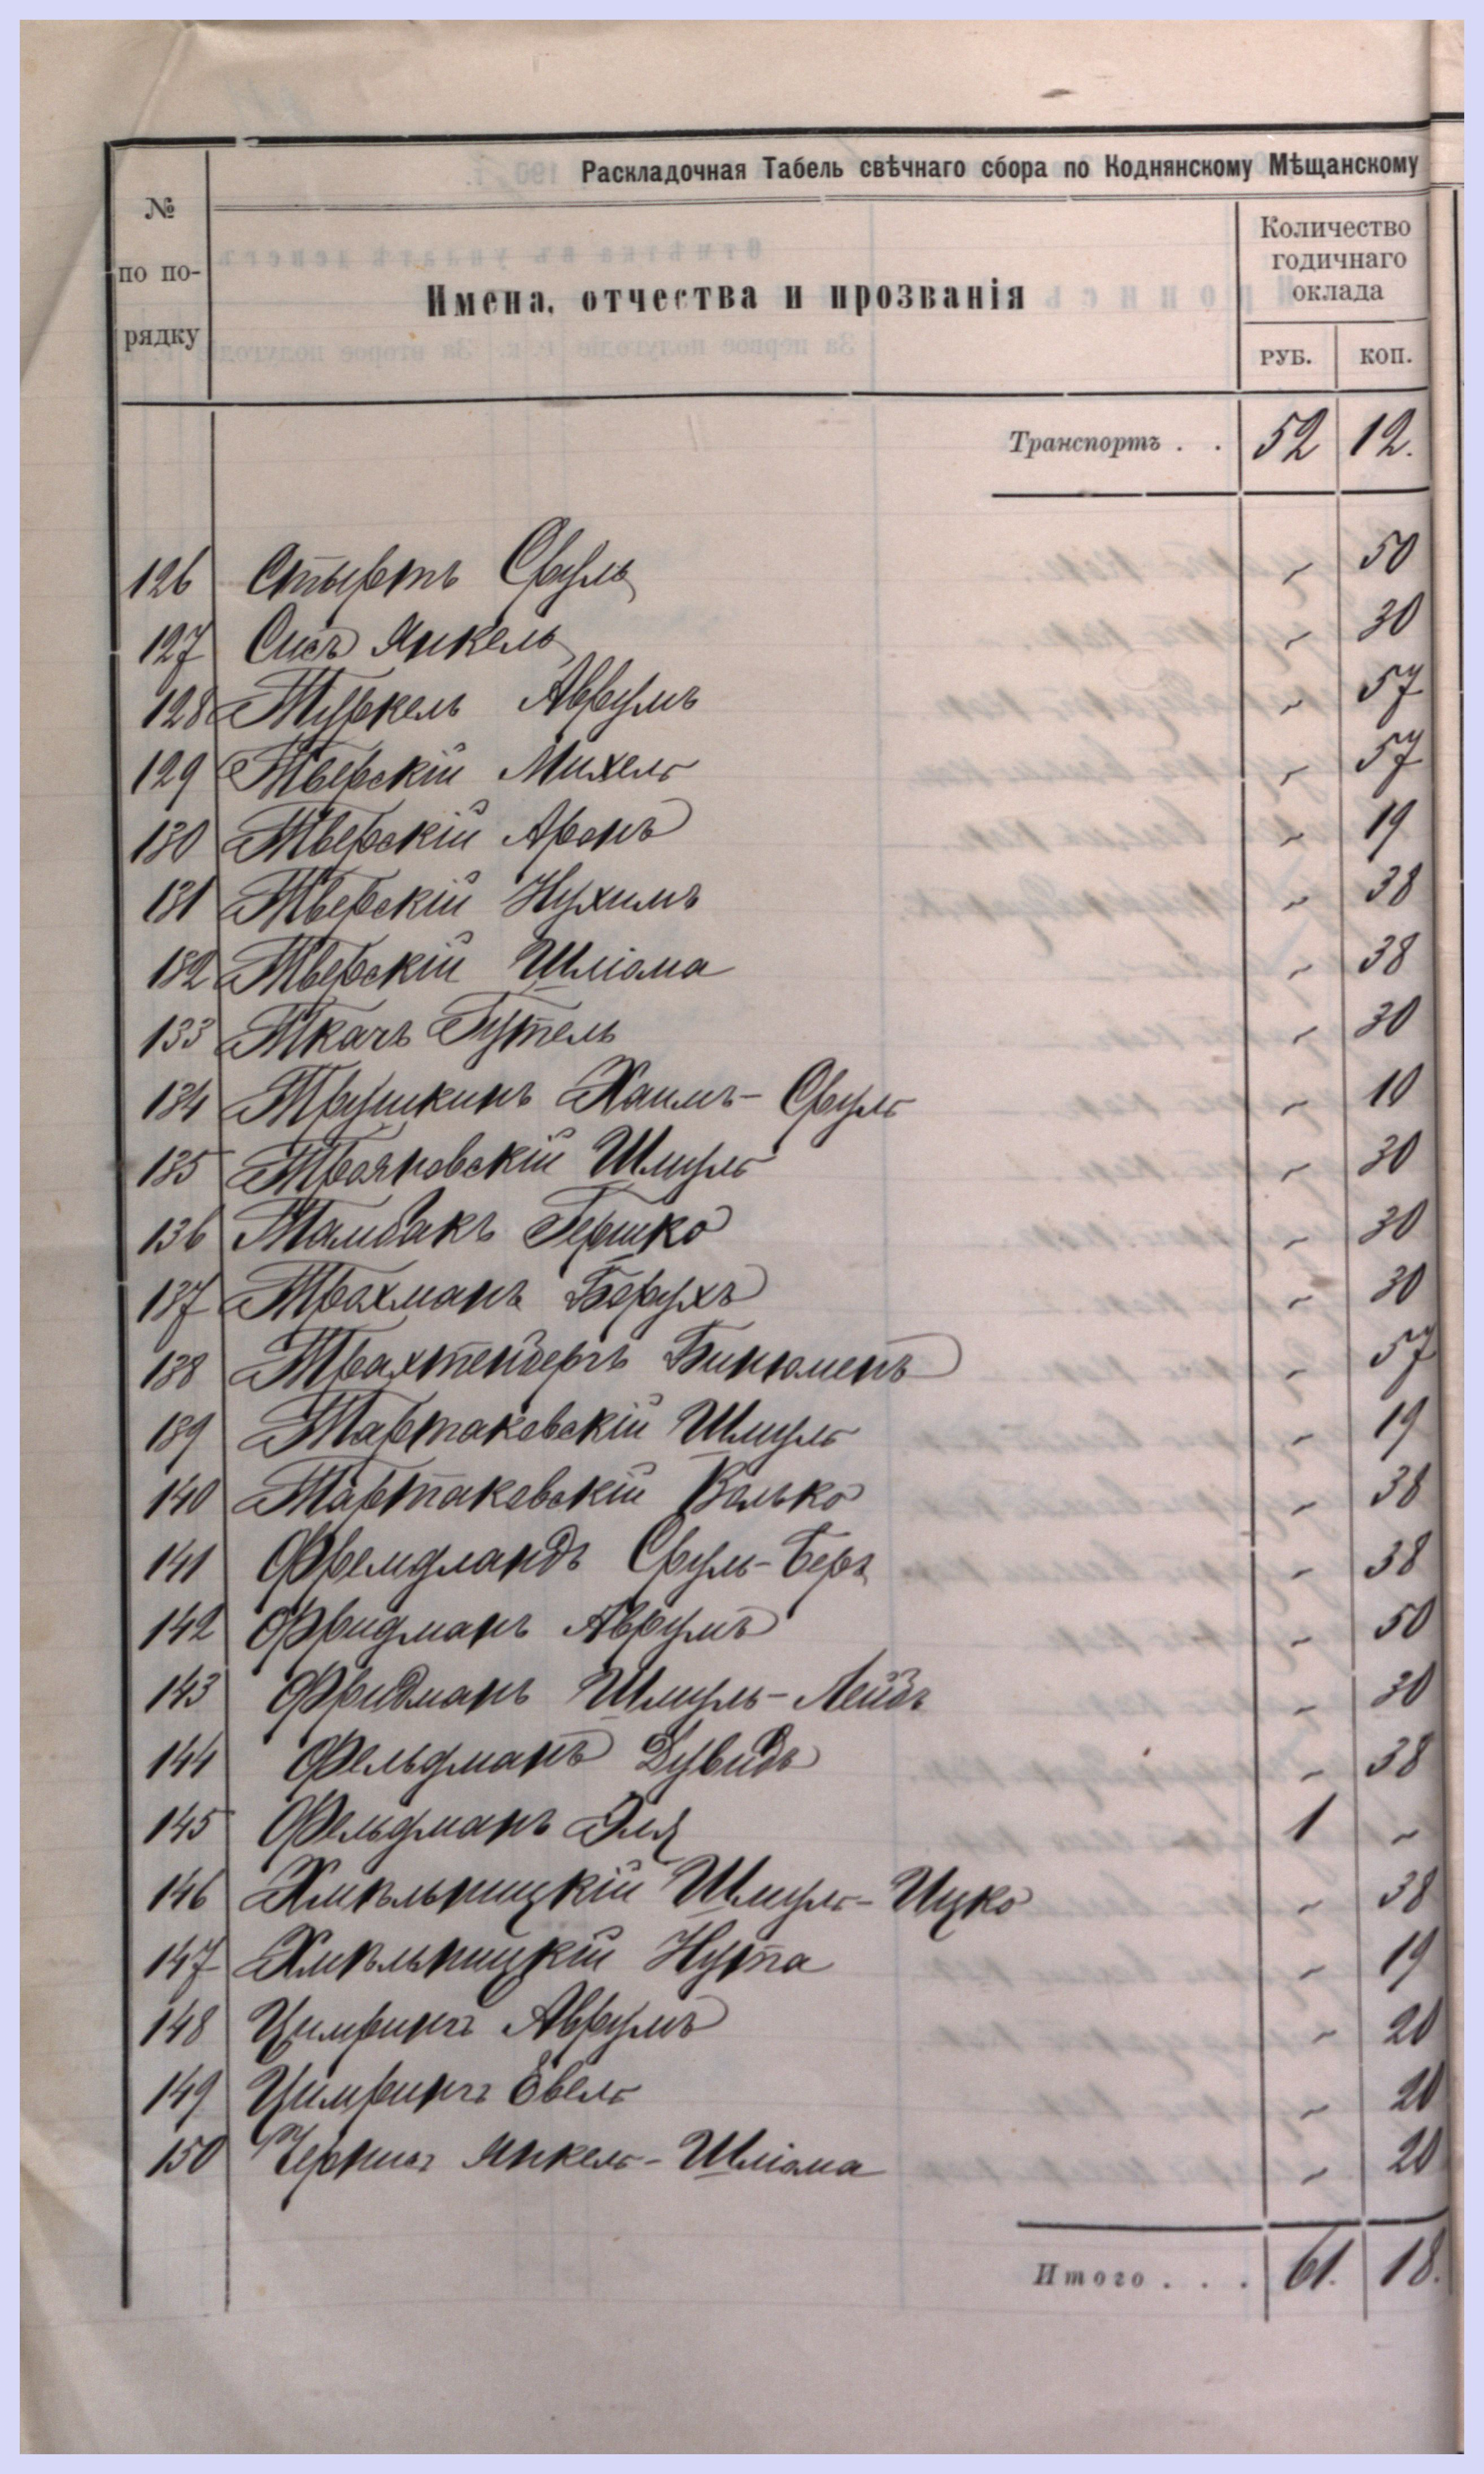 Раскладочная Табель свѣчнаго сбора по Коднянскому Мѣщанскому
№ по порядку
Имена, отчества и прозванія
Количество годичнаго оклада
РУБ. КОП.
Транспортъ . . 52 12.
126 Сруль „ 50
127 Сисъ Янкель „ 30
128 Туркель Аврумъ „ 57
129 Тверскій Михель „ 57
130 Тверскій Аронъ „ 19
131 Тверскій Нухимъ „ 38
132 Тверскій Шліома „ 38
133 Ткачъ Гутель „ 30
134 Трушкинъ Хаимъ-Сруль „ 10
135 Трояновскій Шмуль „ 30
136 Тамбакъ Гершко „ 30
137 Трахманъ Борухъ „ 30
138 Трахтенбергъ Бинюменъ „ 57
139 Тартаковскій Шмуль „ 19
140 Тартаковскій Волько „ 38
141 Фремдландъ Сруль-Беръ „ 38
142 Фридманъ Аврумъ „ 50
143 Фридманъ Шмуль-Лейбъ „ 30
144 Фельдманъ Дувидъ „ 38
145 Фельдманъ Эля 1 „
146 Хмѣльницкій Шмуль-Ицко „ 38
147 Хмѣльницкій Нута „ 19
148 Цимрингъ Аврумъ „ 20
149 Цимрингъ Евель „ 20
150 Чернисъ Янкель-Шліома „ 20
Итого . . . 61. 18.